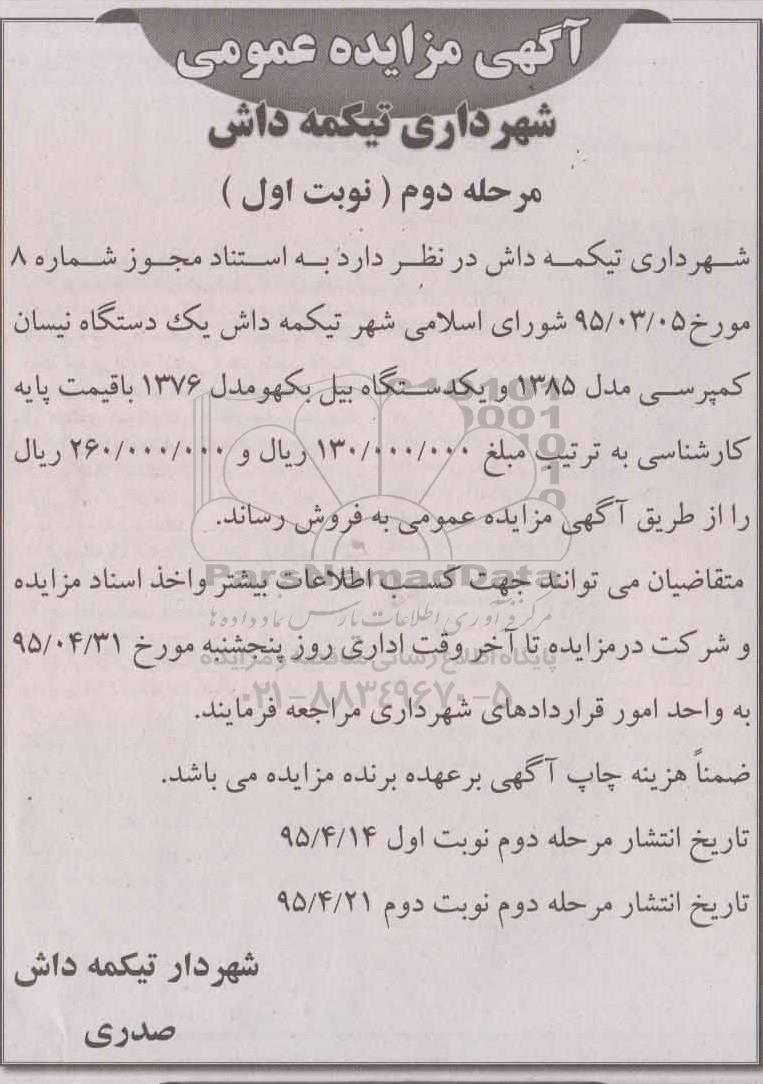 آگهی مزایده عمومی
شهرداری تیکمه داش
مرحله دوم ( نوبت اول )
شهرداری تیکمه داش در نظر دارد به استناد مجوز شماره ۸
مورخ۹۵/۰۳/۰۵ شورای اسلامی شهر تیکمه داش یک دستگاه نیسان
کمپرسی مدل ۱۳۸۵ و یکدستگاه بیل بکهومدل ۱۳۷۶ باقیمت پایه
کارشناسی به ترتیب مبلغ ۱۳۰/۰۰۰/۰۰۰ ریال و ۲۶۰/۰۰۰/۰۰۰ ریال
را از طریق آگهی مزایده عمومی به فروش رساند.
ParsNamadData
متقاضیان می توانند جهت کسب اطلاعات بیشتر واخذ اسناد مزایده
مرکز فرآوری اطلاعات پارس نماد داده ها
و شرکت درمزایده تا آخر وقت اداری روز پنجشنبه مورخ ۹۵/۰۴/۳۱
پایگاه اطلاع رسانی مناقصه و مزایده
۰۲۱-۸۸۳۴۹۶۷۰-۵
به واحد امور قراردادهای شهرداری مراجعه فرمایند.
ضمناً هزینه چاپ آگهی برعهده برنده مزایده می باشد.
تاریخ انتشار مرحله دوم نوبت اول ۹۵/۴/۱۴
تاریخ انتشار مرحله دوم نوبت دوم ۹۵/۴/۲۱
شهردار تیکمه داش
صدری